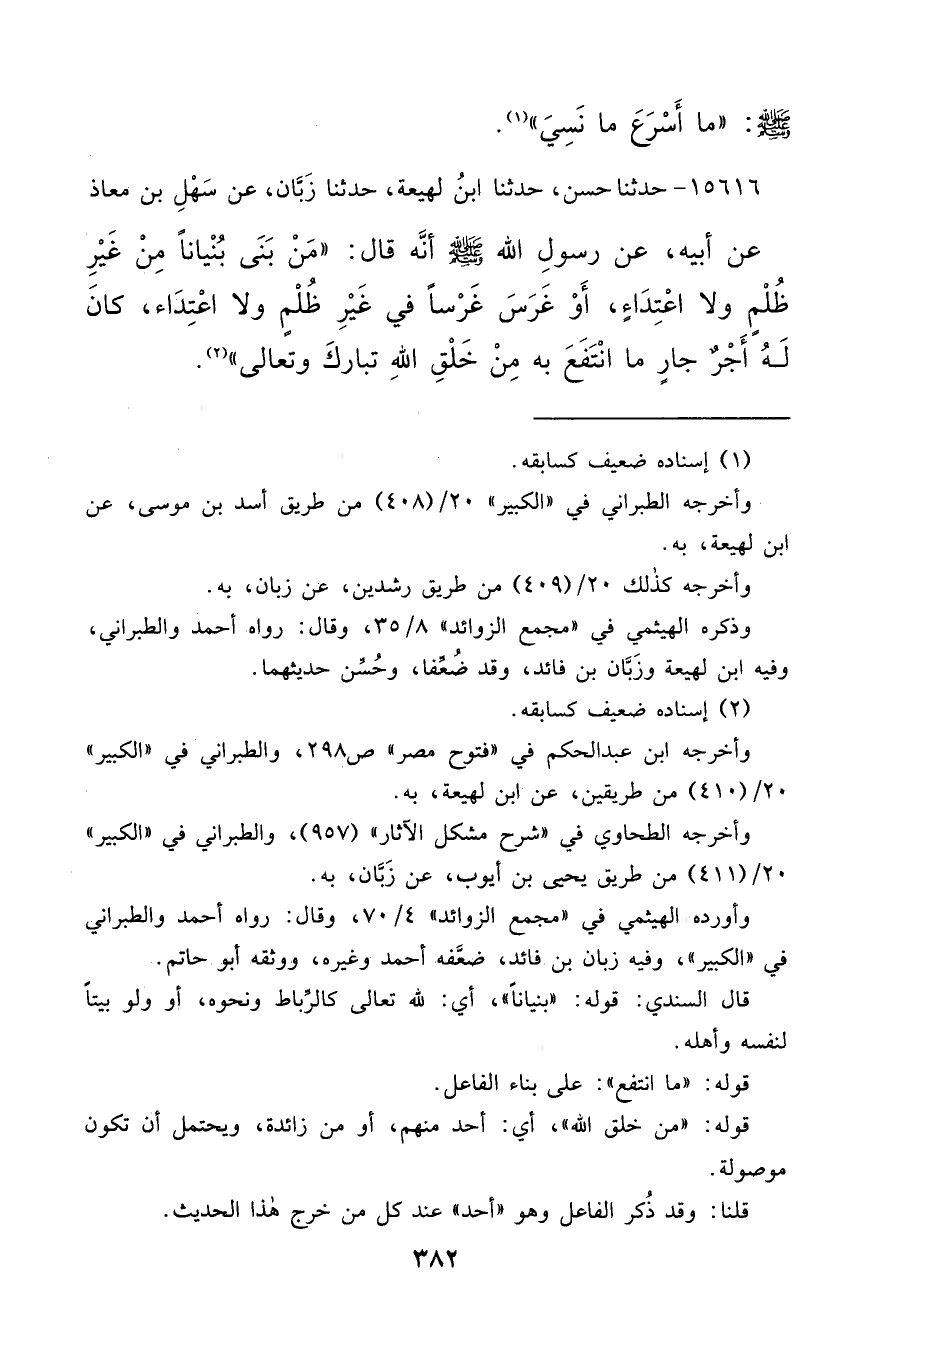 ﷺ: «ما أَسْرَعَ ما نَسِيَ»(١).
١٥٦١٦- حدثنا حسن، حدثنا ابنُ لهيعة، حدثنا زَبَّان، عن سَهْلِ بن معاذ
عن أبيه، عن رسولِ الله ﷺ أنَّه قال: «مَنْ بَنَى بُنْياناً مِنْ غَيْرِ
ظُلْمٍ ولا اعْتِدَاءٍ، أَوْ غَرَسَ غَرْساً في غَيْرِ ظُلْمٍ ولا اعْتِدَاء، كانَ
لَـهُ أَجْرٌ جارٍ ما انْتَفَعَ به مِنْ خَلْقِ اللهِ تباركَ وتعالى»(٢).
(١) إسناده ضعيف كسابقه.
وأخرجه الطبراني في «الكبير» ٢٠/(٤٠٨) من طريق أسد بن موسى، عن
ابن لهيعة، به.
وأخرجه كذٰلك ٢٠/(٤٠٩) من طريق رشدين، عن زبان، به.
وذكره الهيثمي في «مجمع الزوائد» ٣٥/٨، وقال: رواه أحمد والطبراني،
وفيه ابن لهيعة وزَبَّان بن فائد، وقد ضُعِّفا، وحُسِّن حديثهما.
(٢) إسناده ضعيف كسابقه.
وأخرجه ابن عبدالحكم في «فتوح مصر» ص٢٩٨، والطبراني في «الكبير»
٢٠/(٤١٠) من طريقين، عن ابن لهيعة، به.
وأخرجه الطحاوي في «شرح مشكل الآثار» (٩٥٧)، والطبراني في «الكبير»
٢٠/(٤١١) من طريق يحيى بن أيوب، عن زَبَّان، به.
وأورده الهيثمي في «مجمع الزوائد» ٧٠/٤، وقال: رواه أحمد والطبراني
في «الكبير»، وفيه زبان بن فائد، ضعَّفه أحمد وغيره، ووثقه أبو حاتم.
قال السندي: قوله: «بنياناً»، أي: لله تعالى كالرِّباط ونحوه، أو ولو بيتاً
لنفسه وأهله.
قوله: «ما انتفع»: على بناء الفاعل.
قوله: «من خلق الله»، أي: أحد منهم، أو من زائدة، ويحتمل أن تكون
موصولة.
قلنا: وقد ذُكر الفاعل وهو «أحد» عند كل من خرج هٰذا الحديث.
٣٨٢